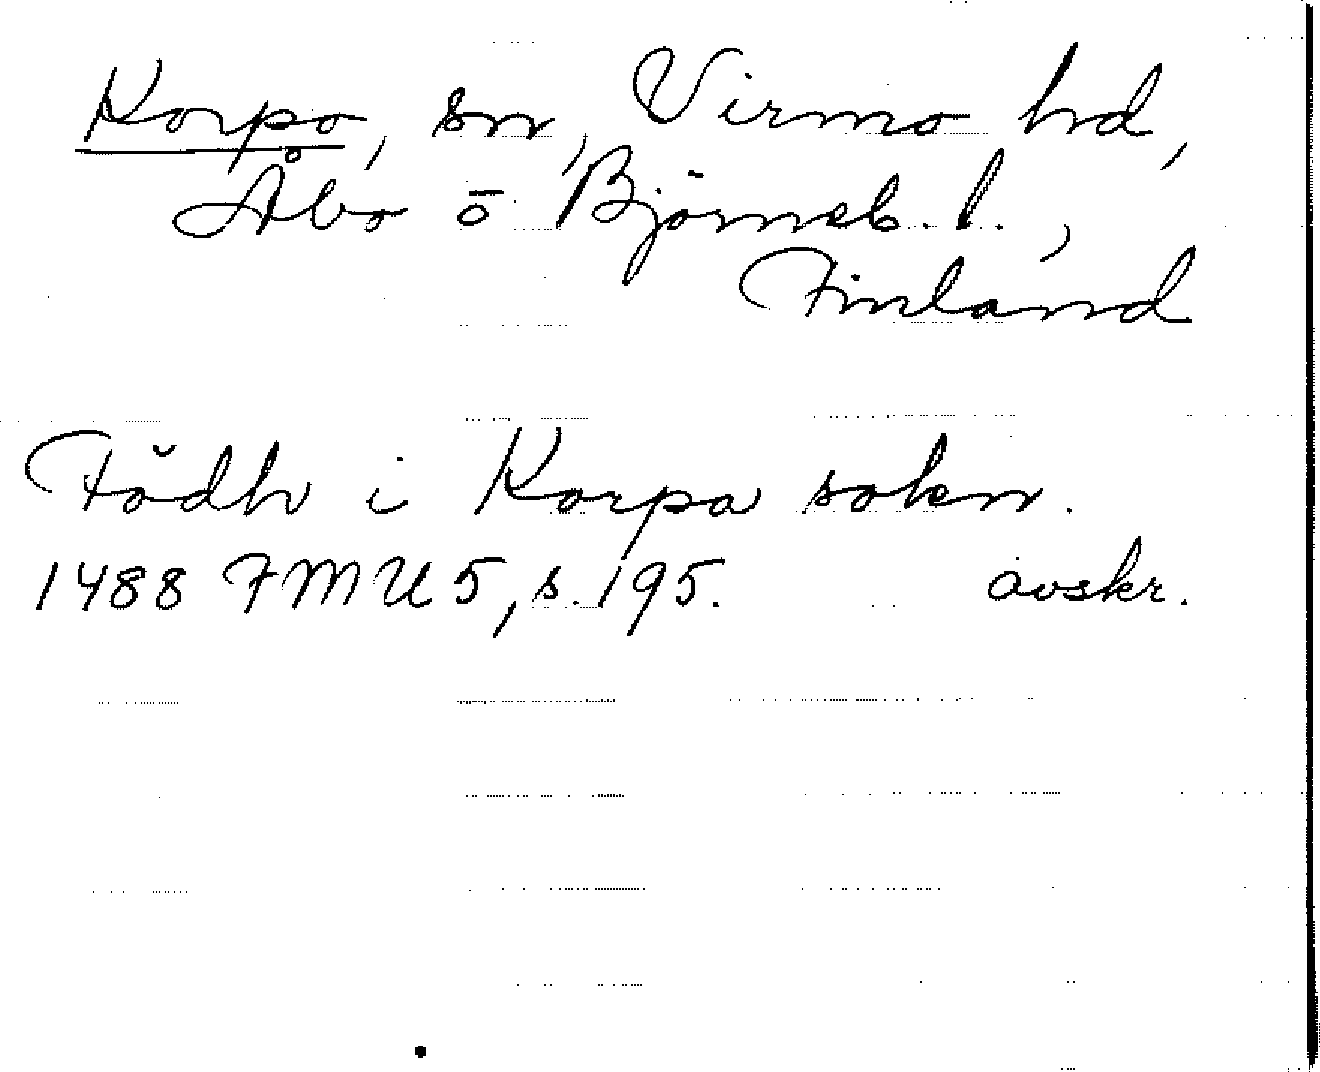 Korpo, sn, Virmo hd,
Åbo ō Björneb. l.,
Finland
Födh i Korpa sokn.
1488 FMU 5, s. 195. avskr.